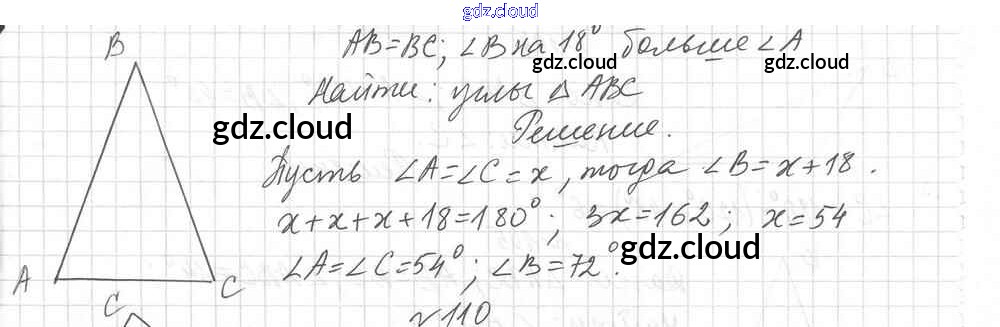 gdz.cloud
B
AB=BC; ∠B на 18° больше ∠A
gdz.cloud gdz.cloud
Найти: углы △ ABC
gdz.cloud
Решение.
Пусть ∠A=∠C=x, тогда ∠B=x+18.
x+x+x+18=180°; 3x=162; x=54
gdz.cloud
∠A=∠C=54°; ∠B=72°.
A C
C
№110